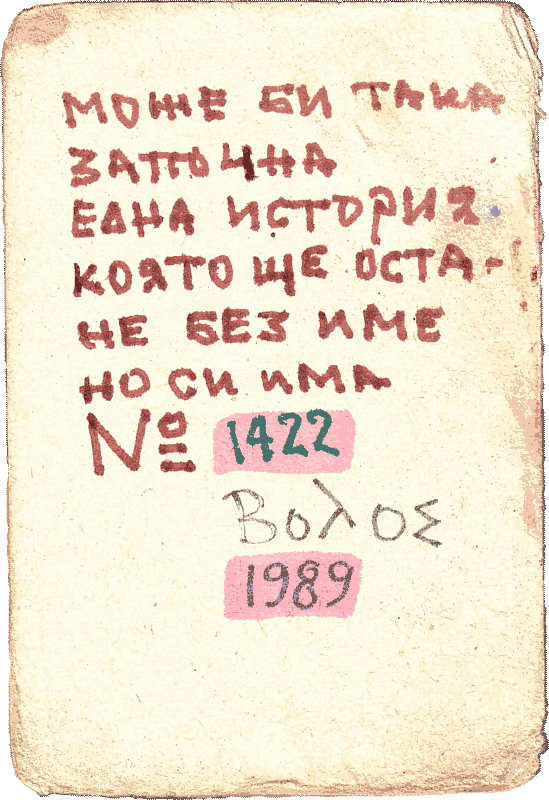 МОЖЕ БИ ТАКА
ЗАПОЧНА
ЕДНА ИСТОРИЯ
КОЯТО ЩЕ ОСТА-
НЕ БЕЗ ИМЕ
НО СИ ИМА
№ 1422
Βολος
1989